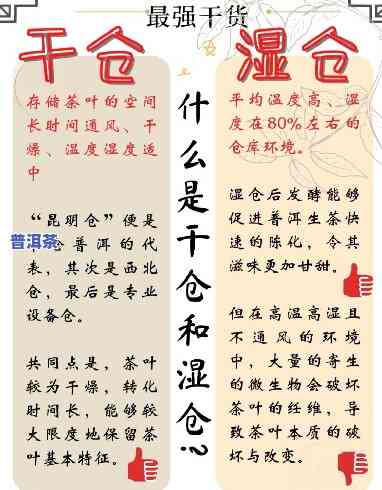 最强干货
干仓
存储茶叶的空间
长时间通风、干
燥、温度湿度适
中
“昆明仓”便是
普洱茶
仓普洱的代
表，其次是西北
仓，最后是专业
设备仓。
共同点是，茶叶
较为干燥，转化
时间长，能够较
大限度地保留茶
叶基本特征。
什么是干仓和湿仓？
湿仓
平均温度高、湿
度在80%左右的
仓库环境。
湿仓后发酵能够
促进普洱生茶快
速的陈化，令其
滋味更加甘甜。
但在高温高湿且
不通风的环境
中，大量的寄生
的微生物会破坏
茶叶的纤维，导
致茶叶本质的破
坏与改变。